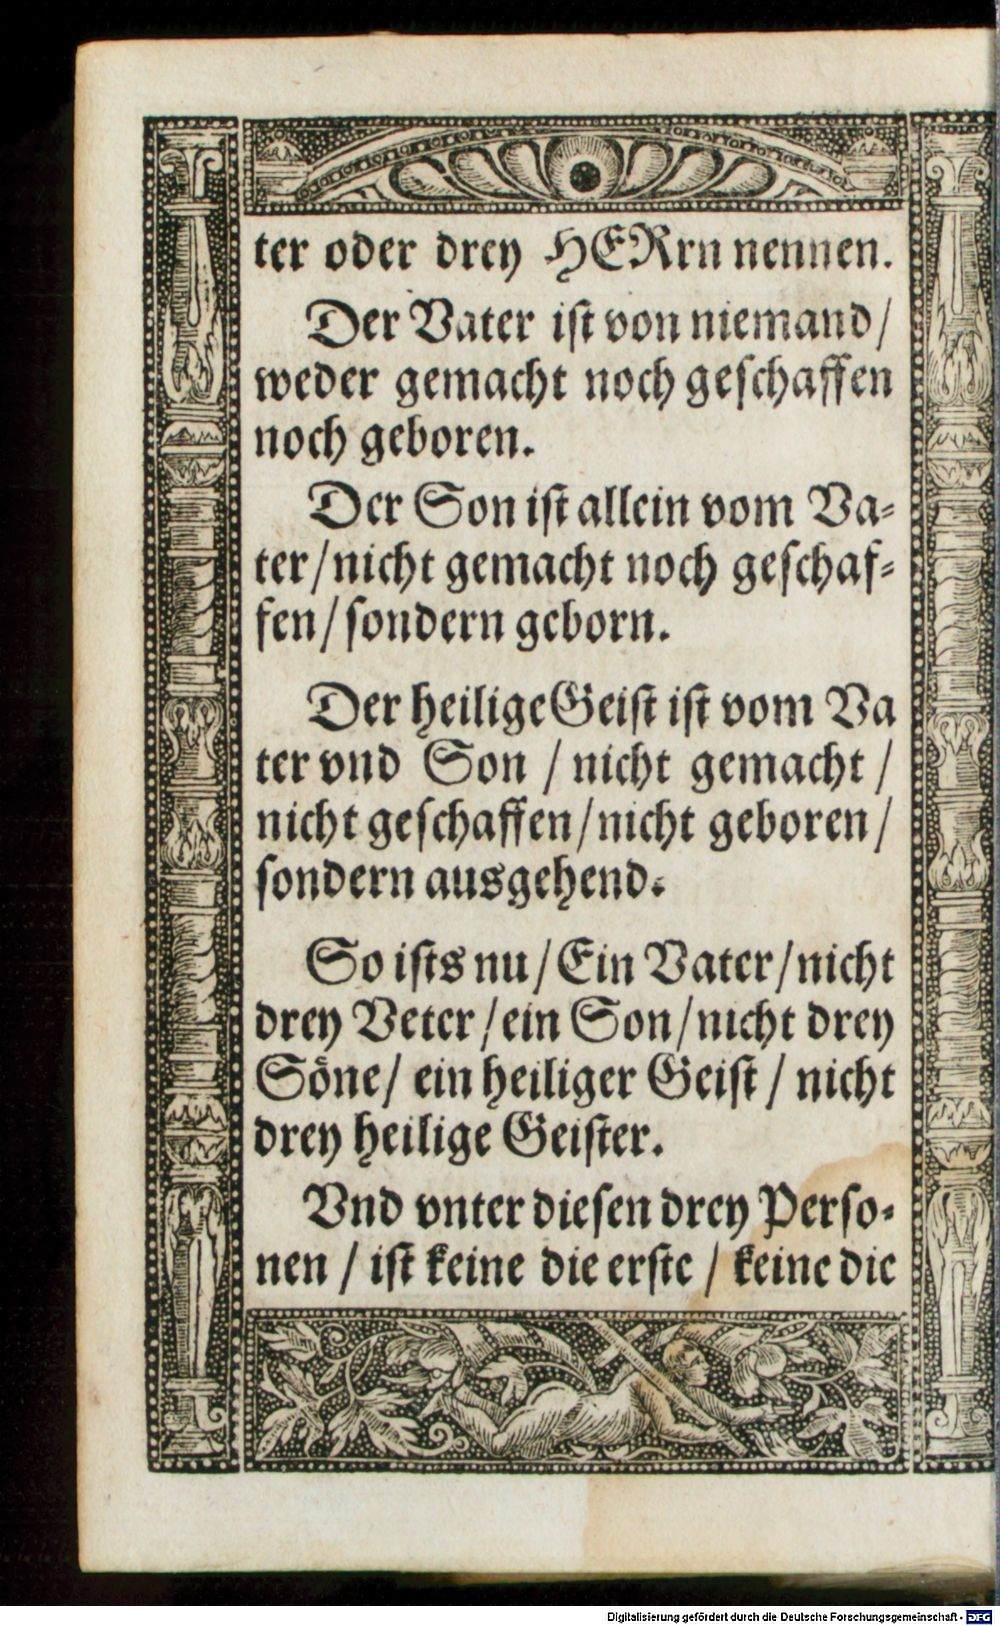 ter oder drey HERrn nennen.
Der Vater ist von niemand/
weder gemacht noch geschaffen
noch geboren.
Der Son ist allein vom Va⸗
ter/nicht gemacht noch geschaf⸗
fen/sondern geborn.
Der heilige Geist ist vom Va
ter vnd Son / nicht gemacht /
nicht geschaffen/nicht geboren/
sondern ausgehend.
So ists nu/Ein Vater/nicht
drey Veter/ein Son/nicht drey
Söne/ ein heiliger Geist / nicht
drey heilige Geister.
Vnd vnter diesen drey Perso⸗
nen / ist keine die erste / keine die
Digitalisierung gefördert durch die Deutsche Forschungsgemeinschaft - DFG